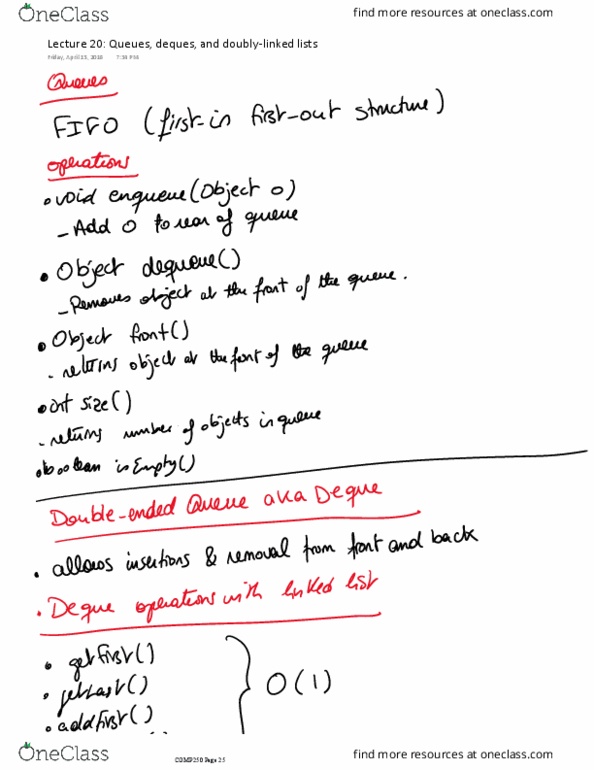 OneClass
find more resources at oneclass.com
Lecture 20: Queues, deques, and doubly-linked lists
Friday, April 13, 2018 7:38 PM
Queues
FIFO (first-in first-out structure)
operations
• void enqueue(Object o)
- Add O to rear of queue
• Object dequeue()
- Removes object at the front of the queue.
• Object front()
- returns object at the front of the queue
• int size()
- returns number of objects in queue
• boolean isEmpty()
Double-ended Queue aka Deque
• allows insertions & removal from front and back
• Deque operations with linked list
• getfirst()
• getLast()
• addfirst()
O(1)
OneClass
COMP250 Page 25
find more resources at oneclass.com